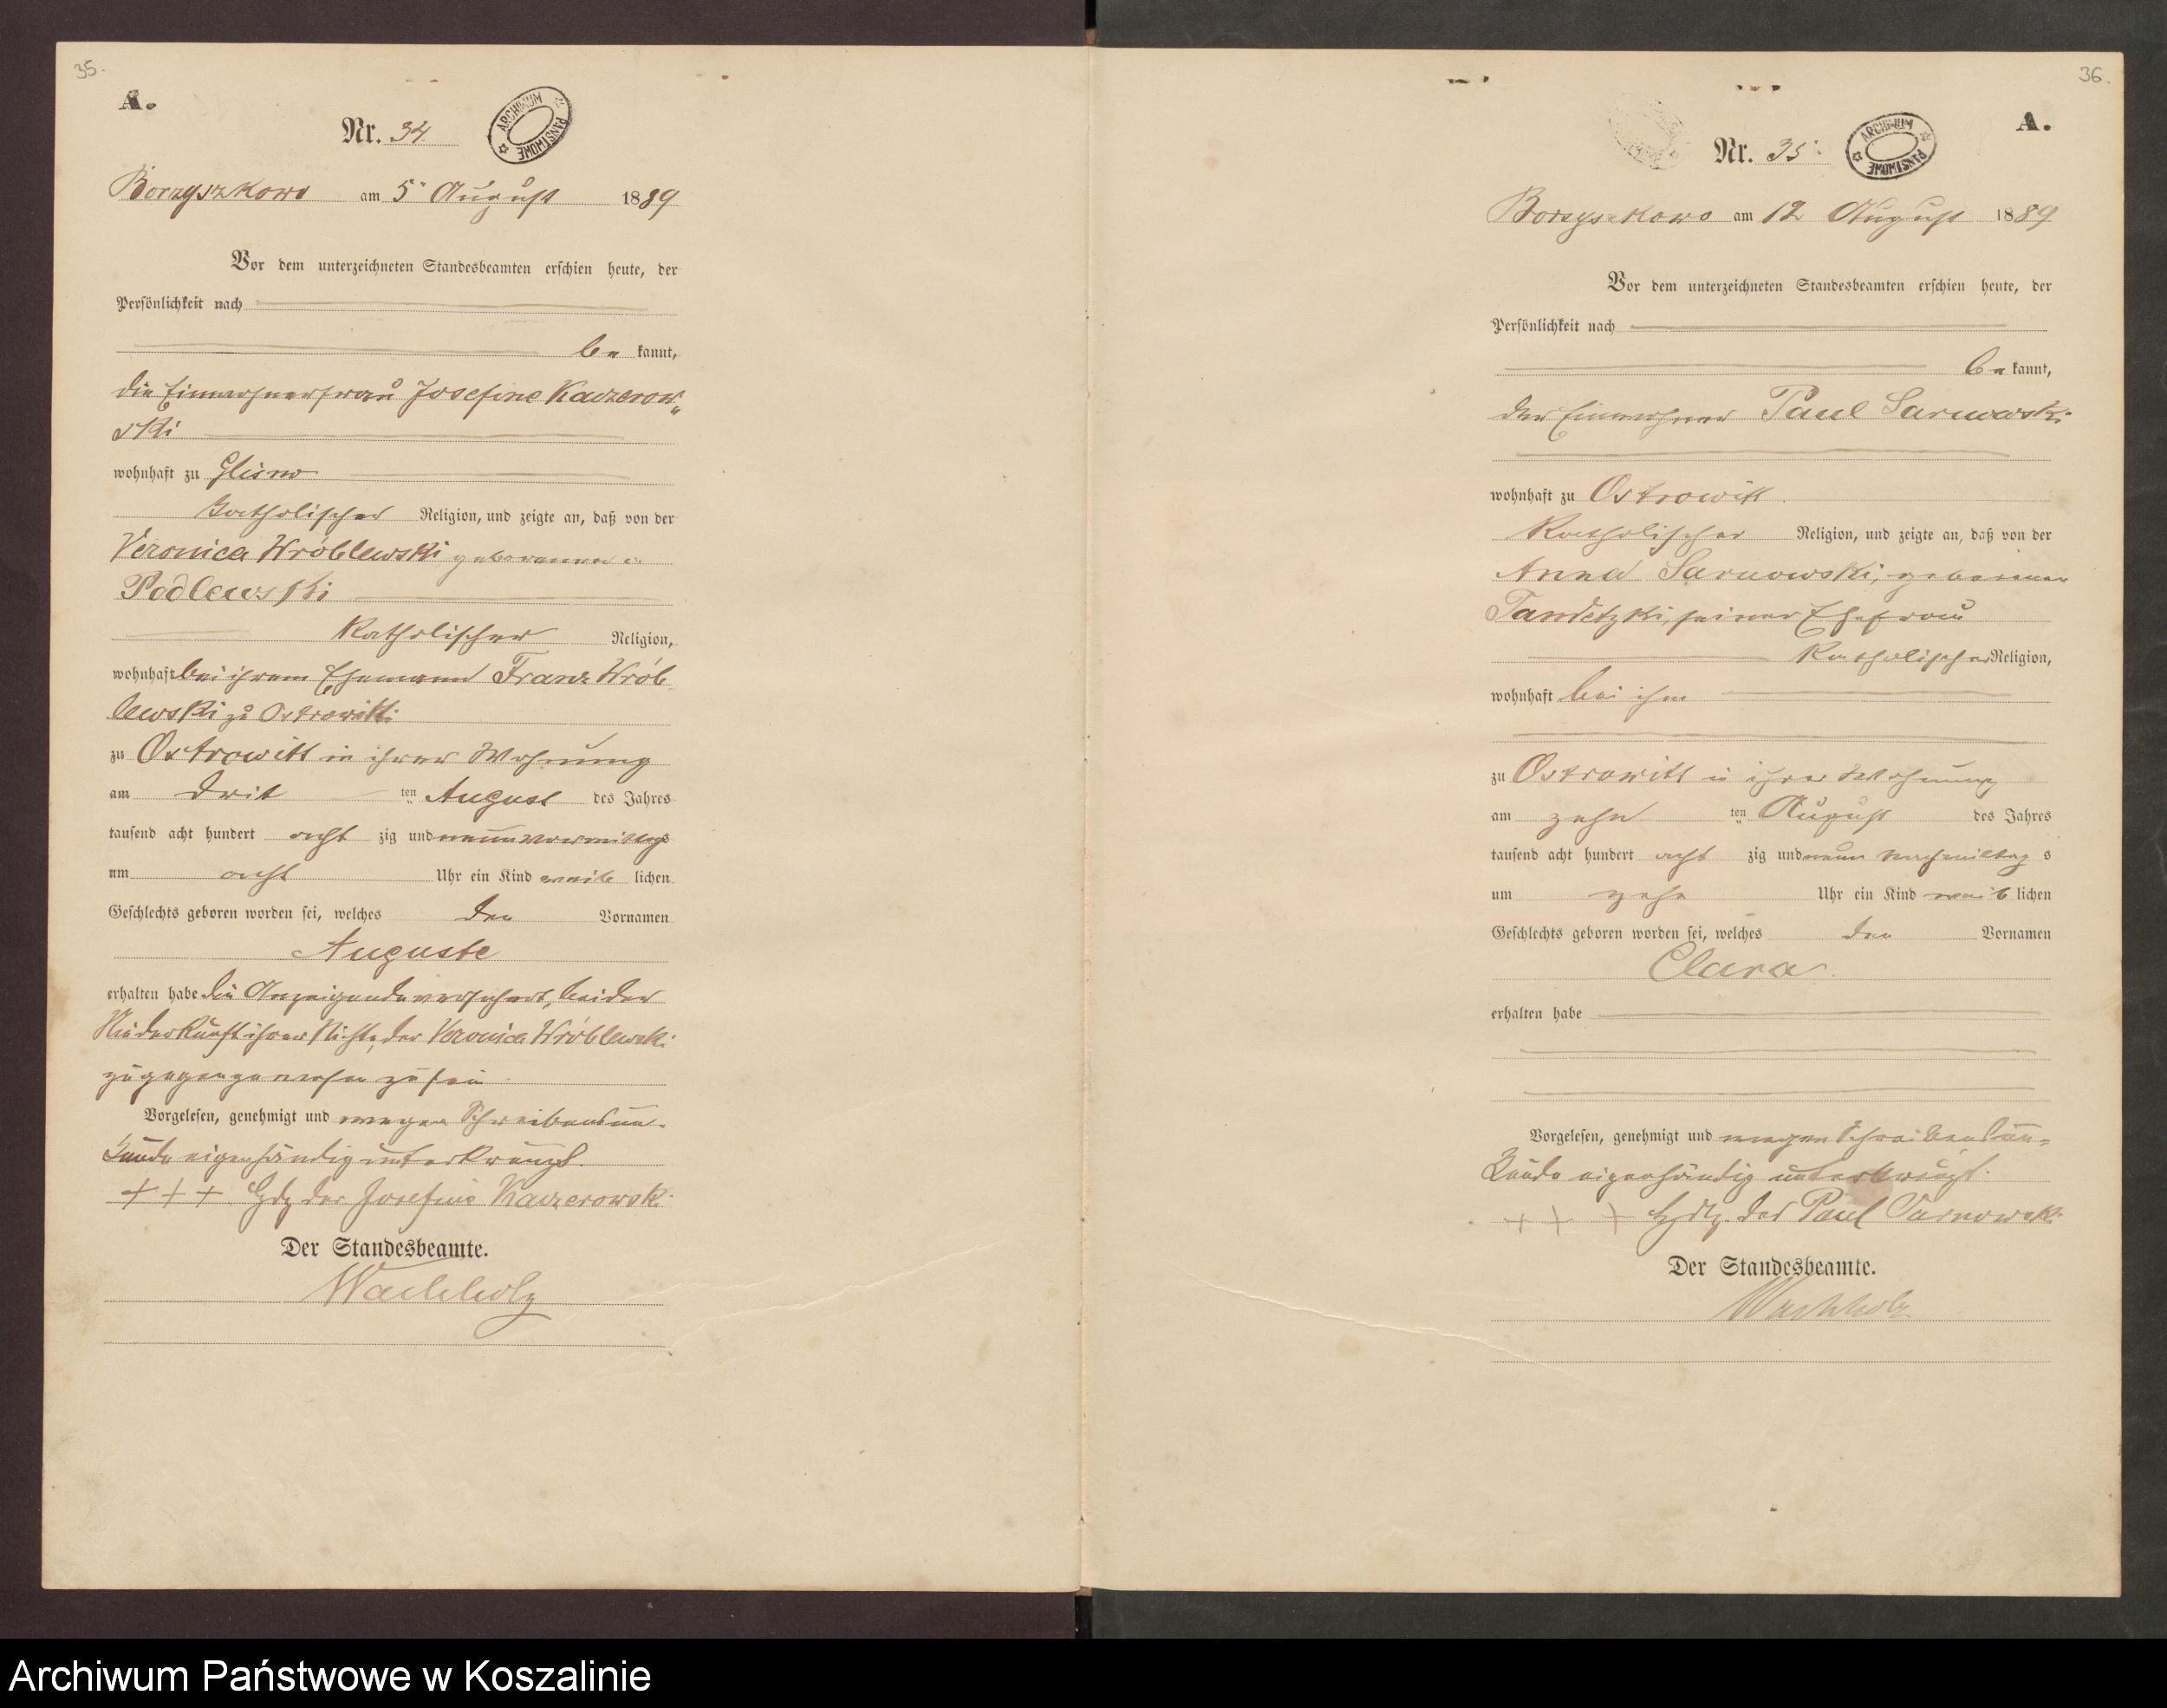 35.
A.
Nr. 34.
ARCHIWUM PAŃSTWOWE
Borzyszkowo am 5 August 1889
Vor dem unterzeichneten Standesbeamten erschien heute, der
Persönlichkeit nach
be kannt,
die Einwohnerfrau Josefine Kaczerow„
ski
wohnhaft zu Glisno
katholischer Religion, und zeigte an, daß von der
Veronica Wróblewski geborenen
Podlewski
katholischer Religion,
wohnhaft bei ihrem Ehemann Franz Wrób
lewski zu Ostrowitt
zu Ostrowitt in ihrer Wohnung
am drit ten August des Jahres
tausend acht hundert acht zig und neun Vormittags
um acht Uhr ein Kind weib lichen
Geschlechts geboren worden sei, welches den Vornamen
Auguste
erhalten habe die Anzeigende versichert, bei der
Niederkunft ihrer Nichte, der Veronica Wróblewski
zugegen gewesen zu sein
Vorgelesen, genehmigt und wegen Schreibensun-
kunde eigenhändig unterkreuzt.
+++ Hdz der Josefine Kaczerowski
Der Standesbeamte.
Wachholz
36.
A.
Nr. 35
ARCHIWUM PAŃSTWOWE
Borzyszkowo am 12 August 1889
Vor dem unterzeichneten Standesbeamten erschien heute, der
Persönlichkeit nach
be kannt,
der Einwohner Paul Sarnowski
wohnhaft zu Ostrowitt
katholischer Religion, und zeigte an, daß von der
Anna Sarnowski, geborenen
Tandetzki, seiner Ehefrau
katholischer Religion,
wohnhaft bei ihm
zu Ostrowitt in ihrer Wohnung
am zehn ten August des Jahres
tausend acht hundert acht zig und neun Nachmittag s
um zehn Uhr ein Kind weib lichen
Geschlechts geboren worden sei, welches den Vornamen
Clara
erhalten habe
Vorgelesen, genehmigt und wegen Schreibensun=
kunde eigenhändig unterkreuzt.
+ + + Hdz. des Paul Sarnowski
Der Standesbeamte.
Wachholz
Archiwum Państwowe w Koszalinie